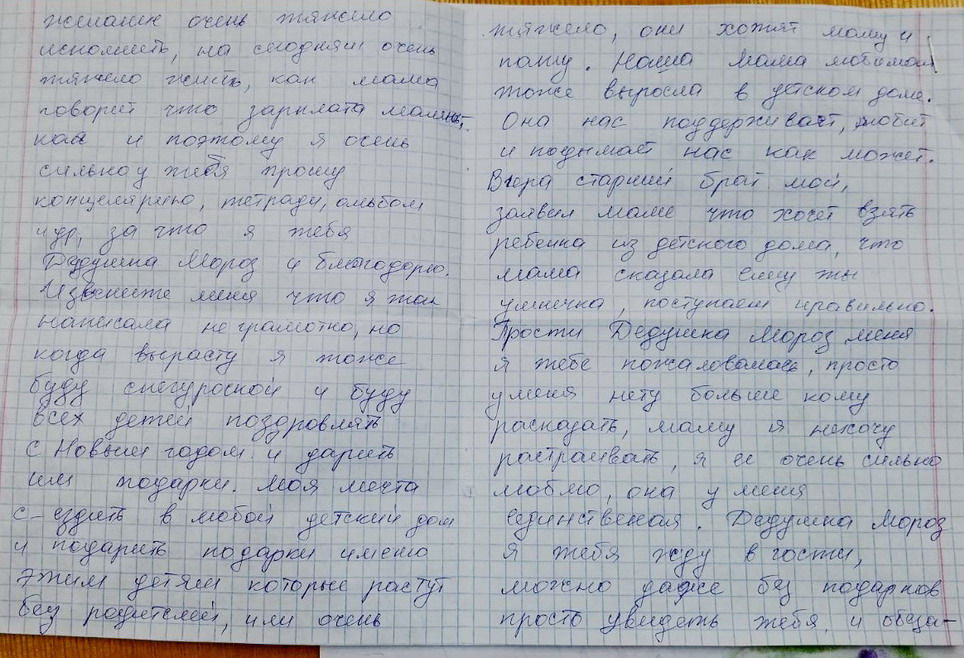 желание очень тяжело
исполнить, на сегодняш очень
тяжело жить, как мама
говорит что зарплата малинь,
кая и поэтому я очень
сильно у тебя прошу
концелярию, тетради, альбом
идр, за что я тебя
Дедушка Мороз и благодорю.
Извените меня что я так
написала не грамотно, но
когда вырасту я тоже
буду снегурочкой и буду
всех детей поздровлять
с Новым годом и дарить
им подарки. Моя мечта
с-ездить в любой детский дом
и подарить подарки имено
этим детям которые растут
без родителей, или очень
тяжело, они хотят маму и
папу. Наша мама любимая
тоже выросла в дском доме.
Она нас поддерживает, любит
и подымает нас как может.
Вчера старший брат мой,
заявил маме что хочет взять
ребенка из детского дома, что
мама сказала ему ты
умничка, поступаем правильно.
Прости Дедушка Мороз меня
я тебе пожаловалась, просто
у меня нету больше кому
расказать, маму я нехочу
растраивать, я ее очень сильно
люблю, она у меня
единственая. Дедушка Мороз
я тебя жду в гости,
можно даже без подарков
просто увидеть тебя, и обеща-